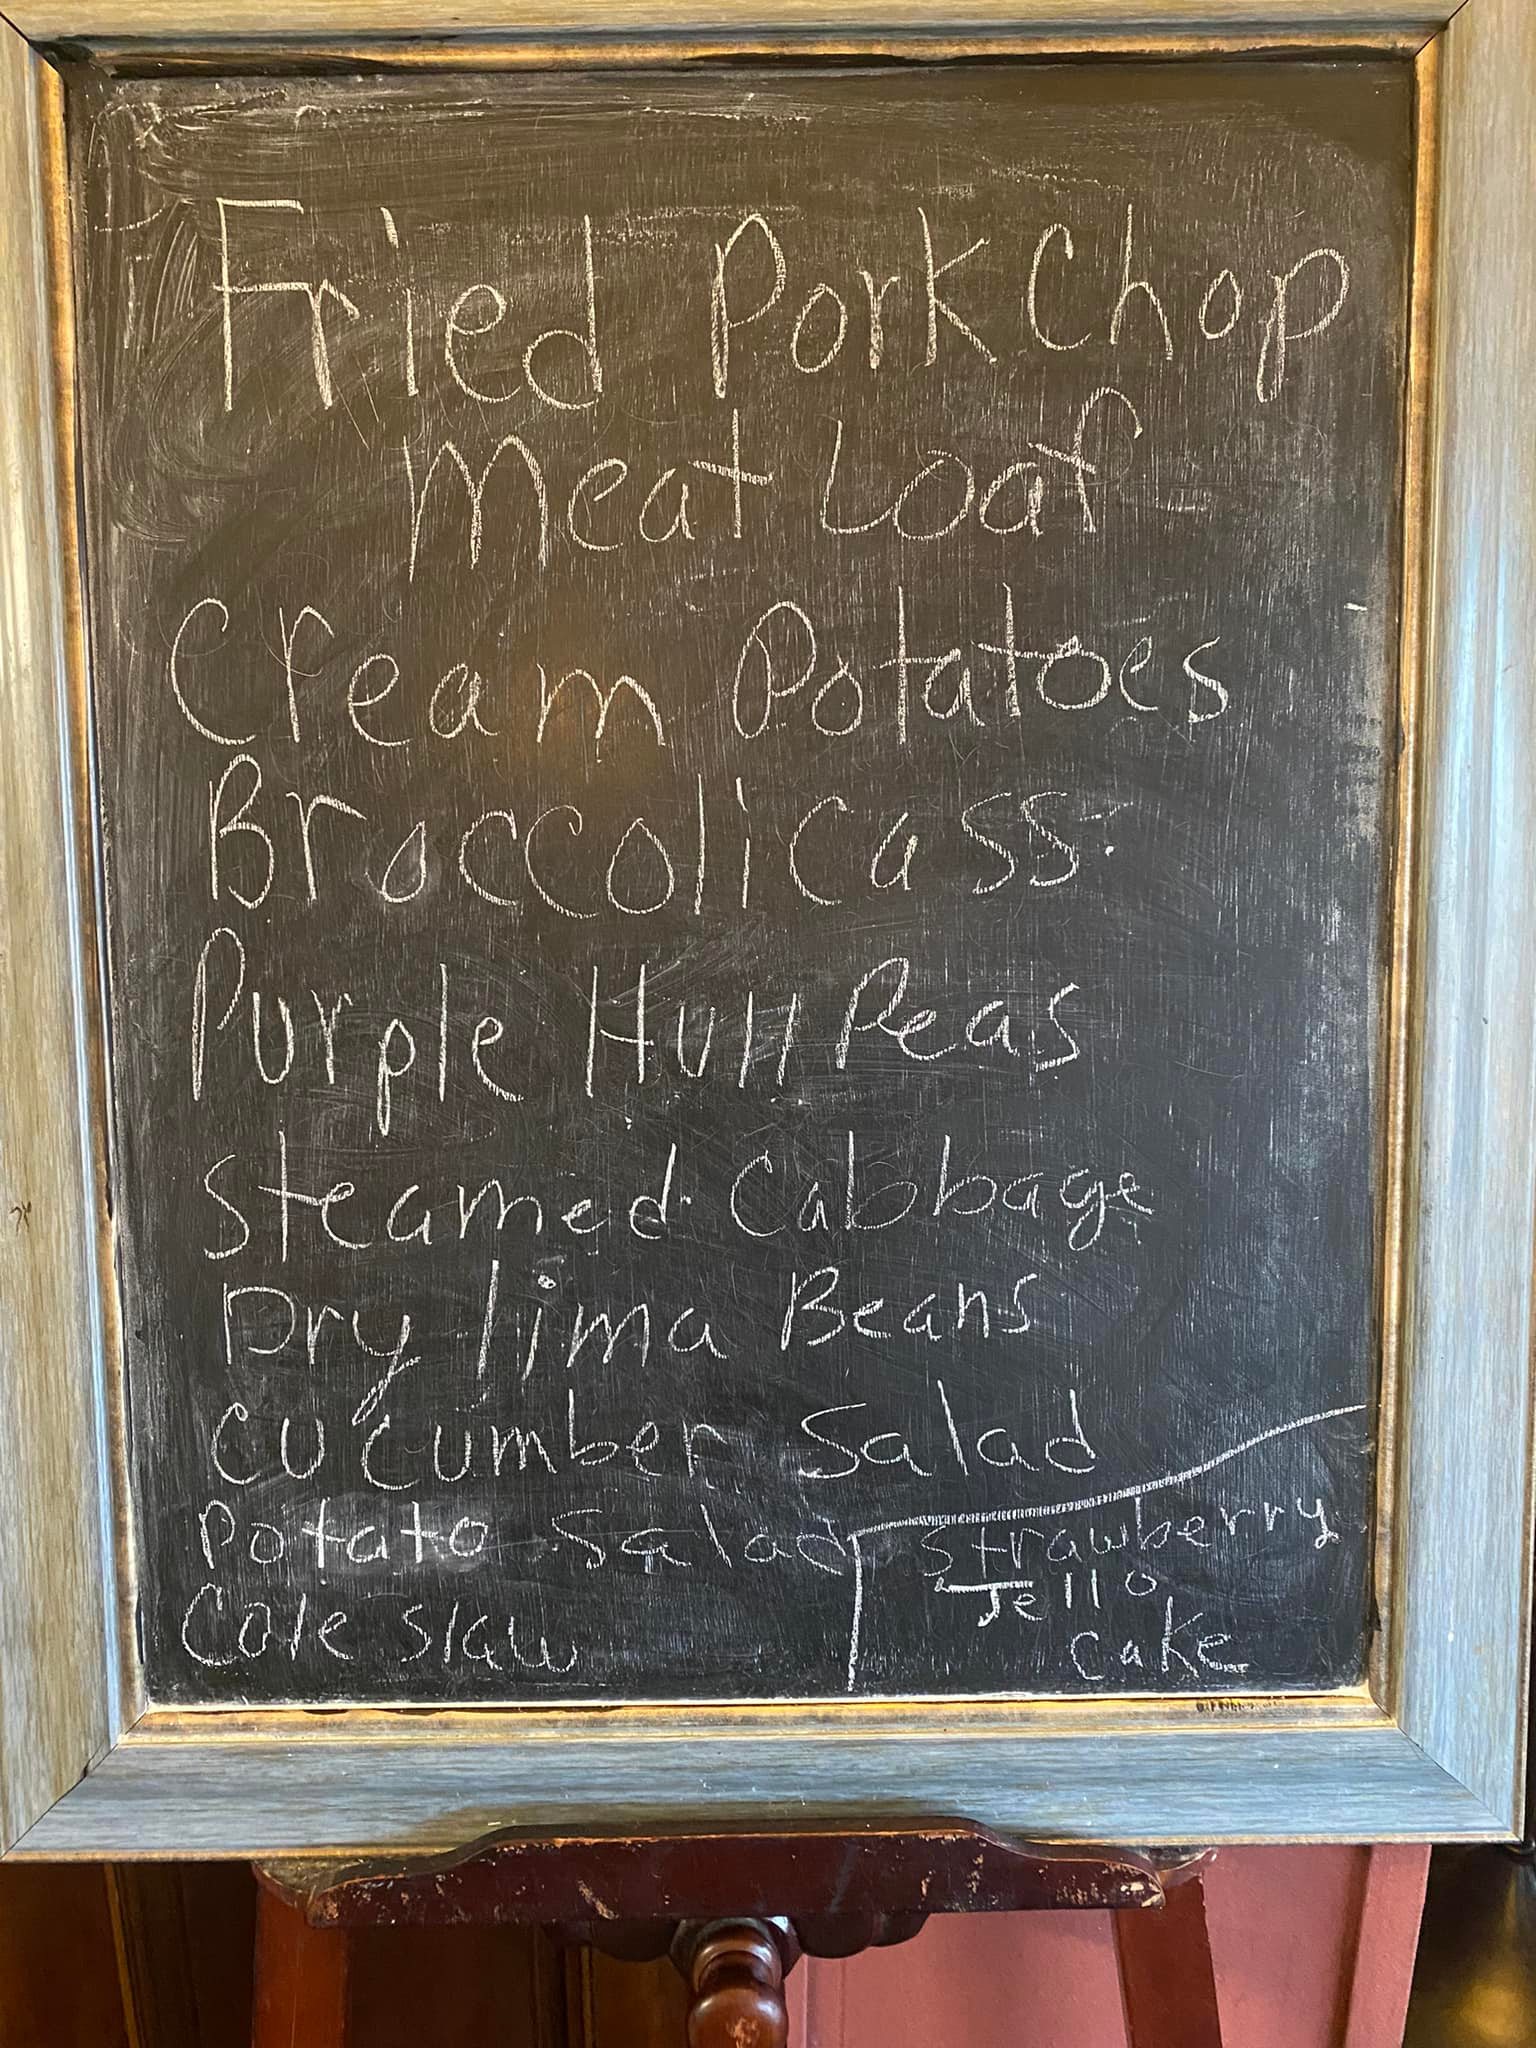 Fried Pork Chop
Meat Loaf
Cream Potatoes
Broccoli Cass.
Purple Hull Peas
Steamed Cabbage
Dry lima Beans
Cucumber Salad
Potato Salad
Cole Slaw
Strawberry
Jello
Cake